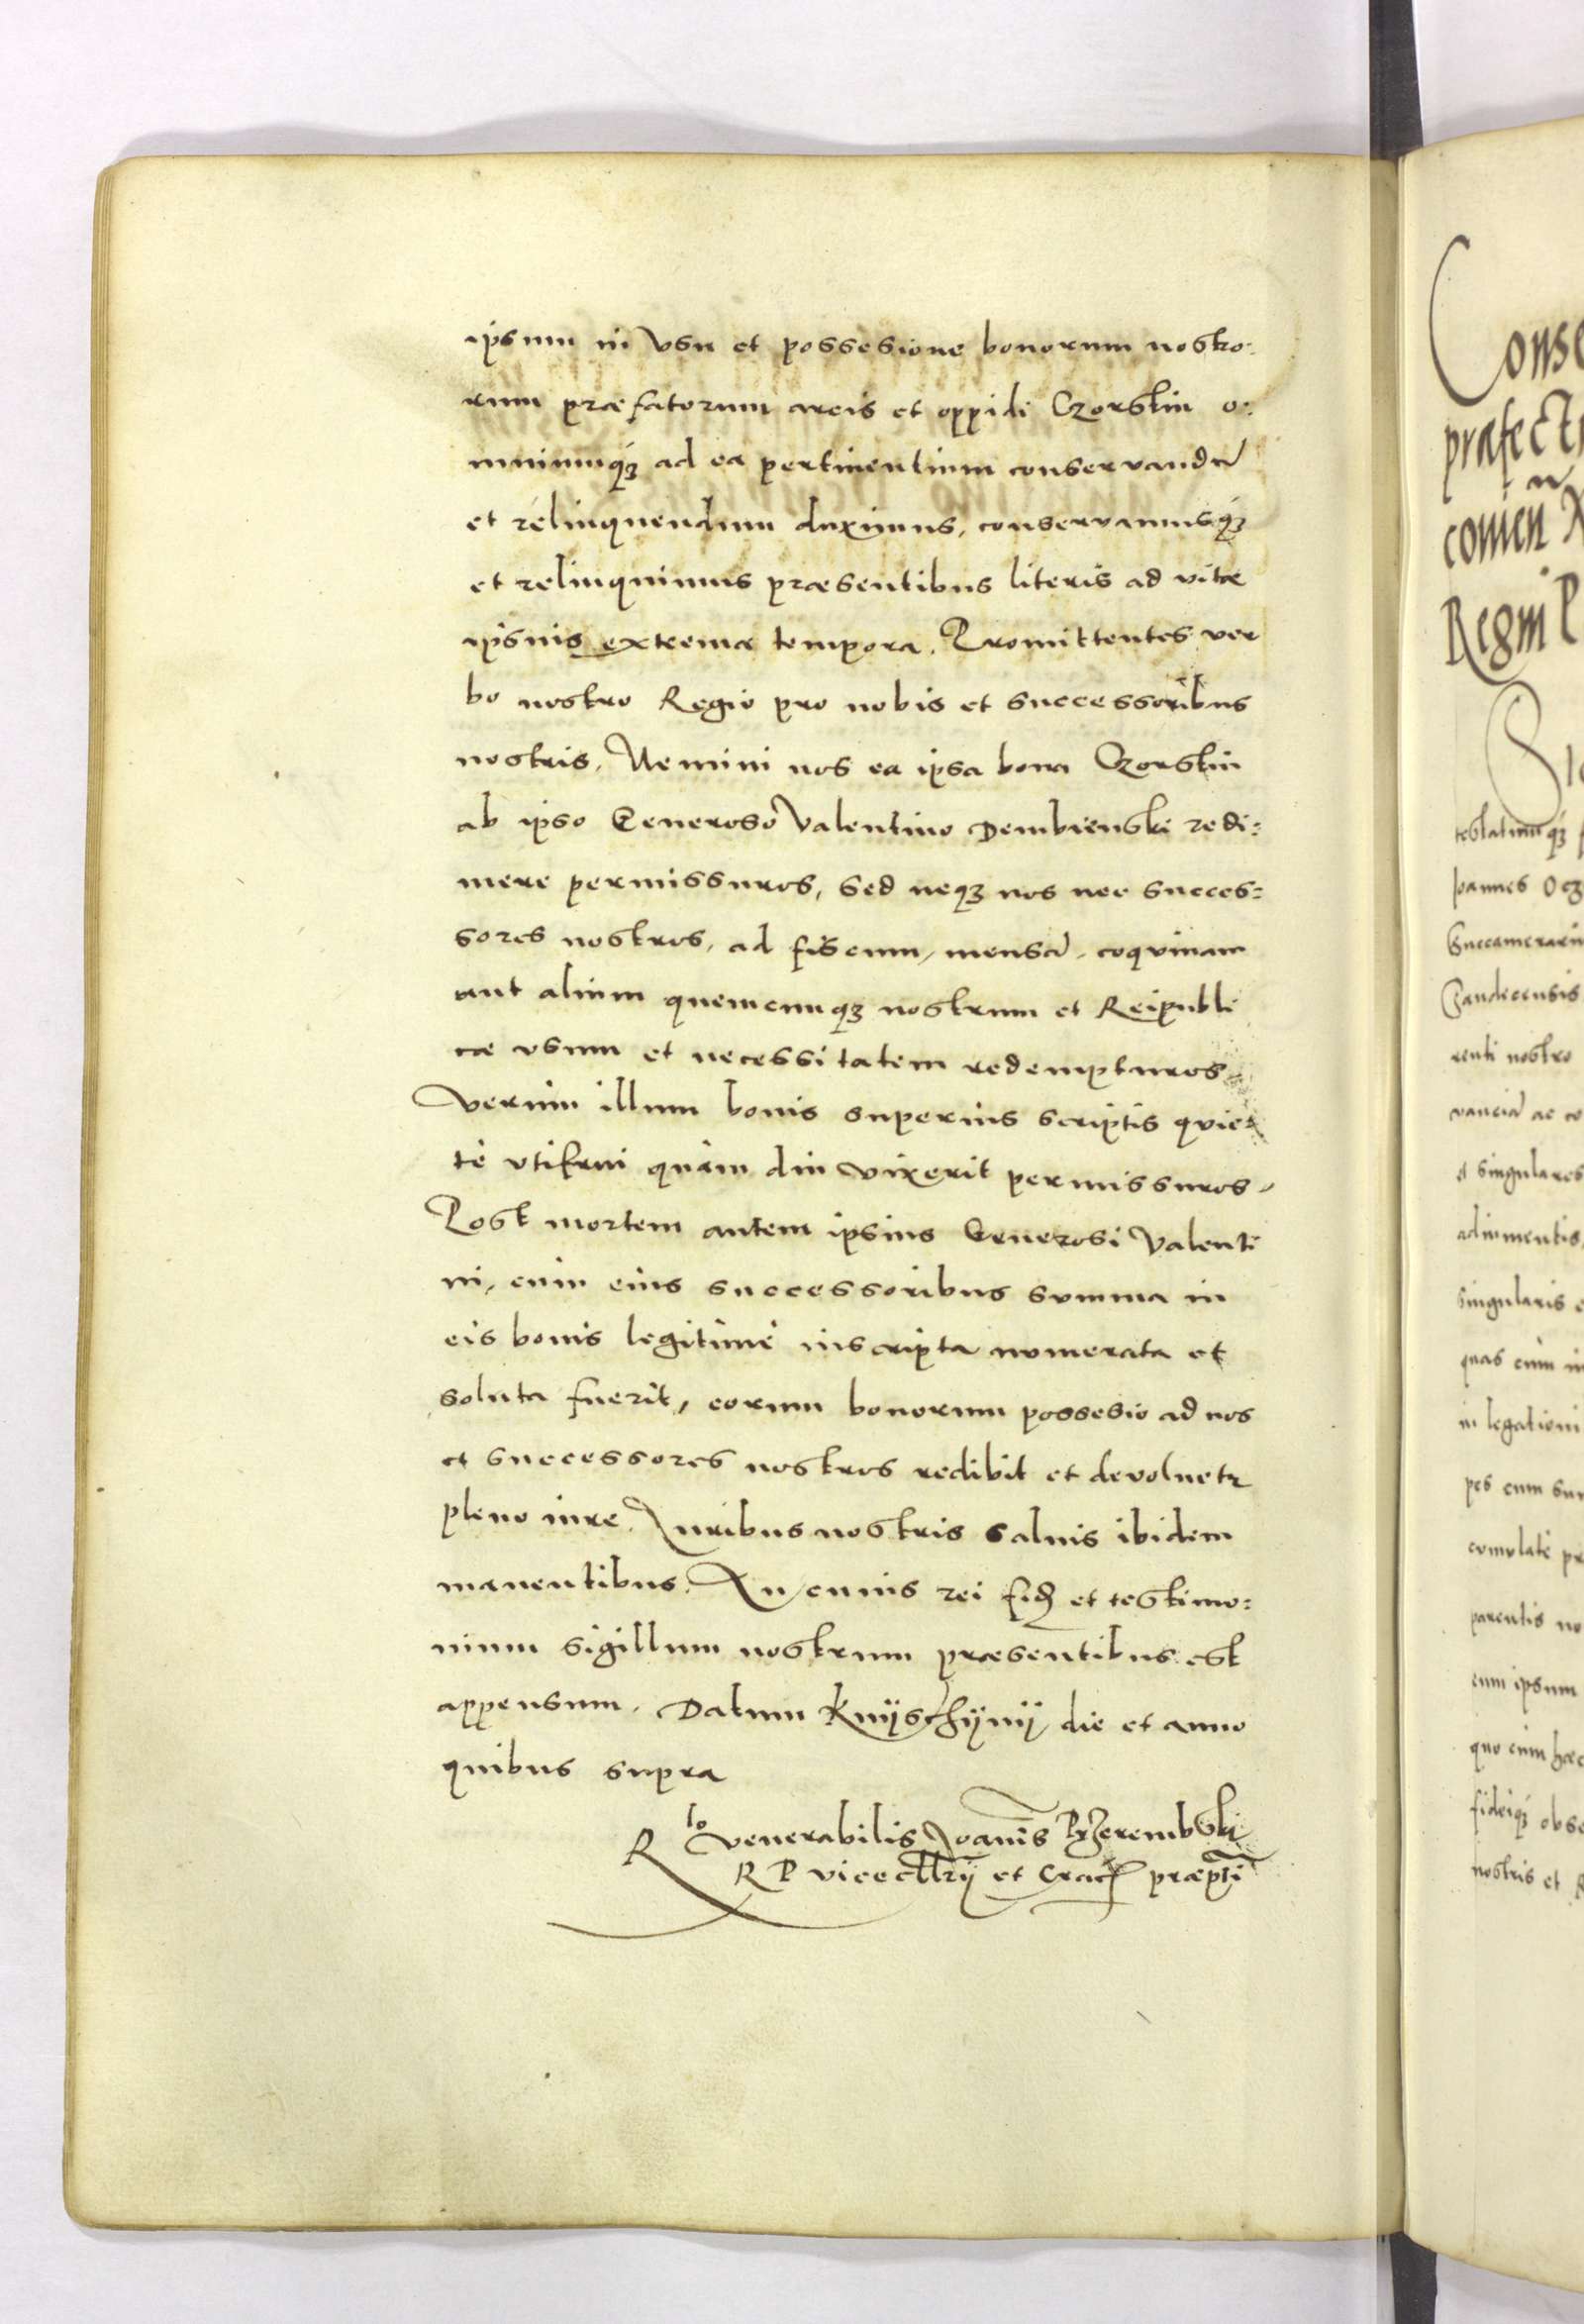 ipsum in vsu et possesione bonorum nostro:
rum præfatorum arcis et oppidi Czorstin o:
mniumq́ʒ ad ea pertinentium conservandū
et relinquendum duximus, conservamusq́ʒ
et relinquimus præsentibus literis ad vitæ
ipsius extrema tempora. Promittentes ver
bo nostro Regio pro nobis et successoribus
nostris. Nemini nos ea ipsa bona Czorstin
ab ipso Generoso Valentino Dembienski redi:
mere permissuros, sed neqʒ nos nec succes:
sores nostros, ad fiscum, mensā, coqvinam
aut alium quemcunqʒ nostrum et Reipubli
cæ vsum et necessitatem redempturos.
Verùm illum bonis superius scriptis qvie:
tè vtifrui quàm diu vixerit permissuros,
Post mortem autem ipsius Generosi Valenti
ni, cum eius successoribus summa in
eis bonis legitimè inscripta numerata et
soluta fuerit, eorum bonorum possesio ad nos
et successores nostros redibit et devoluetr
pleno iure. Iuribus nostris saluis ibidem
manentibus. In cuius rei fidē et testimo:
nium sigillum nostrum præsentibus est
appensum. Datum Knijschijnij die et anno
quibus supra
Rlo venerabilis Joannis Przerembski
R P vicecllrij et Crac præpti
Conse
præfecti
comen
Regni P
testatumq́ʒ
Joannes Ocʒ
Succamerariu
Sandecensis
renti nostro
et singulares
singularis e
quas cùm in
in legationi
pes cum sum
cumulatè pr
parentis no
cum ipsum
quo cùm hæc
fideiq́ʒ obse
nostris et R